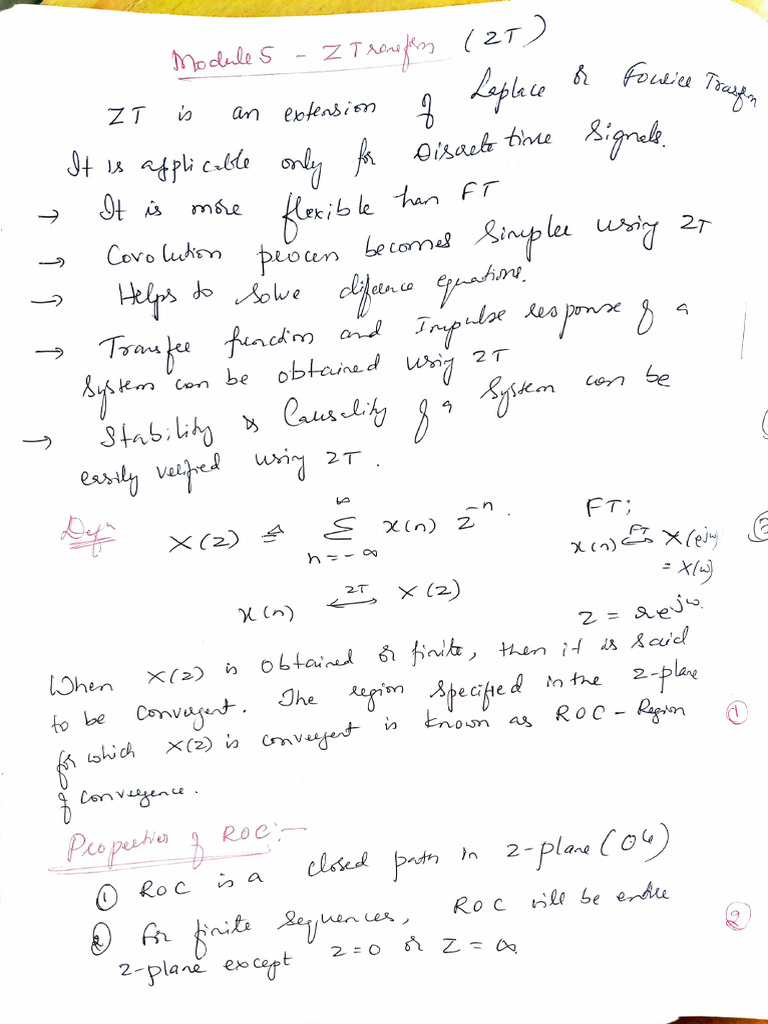 Module 5 - Z Transfom (ZT)
ZT is an extension of Laplace or Fourier Transfom
It is applicable only for Discrete time Signals.
→ It is more flexible than FT
→ Covolution process becomes Simpler using ZT
→ Helps to solve diference equations.
→ Transfer function and Impulse response of a
system can be obtained using ZT
→ Stability & Causality of a system can be
easily verified using ZT.
Defⁿ X(z) ≜ ∞ Σ n=-∞ x(n) z⁻ⁿ. FT:
x(n) ⟷FT X(e^jω)
= X(ω)
x(n) ⟷ZT X(z) z = re^jω.
When X(z) is obtained or finite, then it is said
to be convergent. The region specified in the z-plane
for which X(z) is convergent is known as ROC - Region ①
of convergence.
Properties of ROC:-
① ROC is a closed path in z-plane (Ole)
② For finite sequences, ROC will be entire
z-plane except z=0 or z=∞. ②